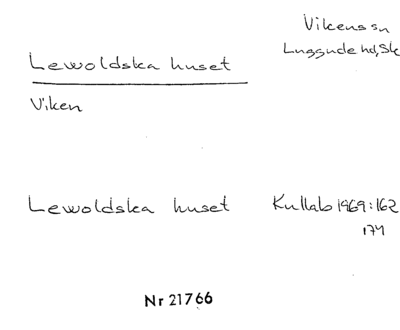 Vikens sn
Luggude hd, Sk
Lewoldska huset
Viken
Lewoldska huset Kullab 1969:162
174
Nr 21766